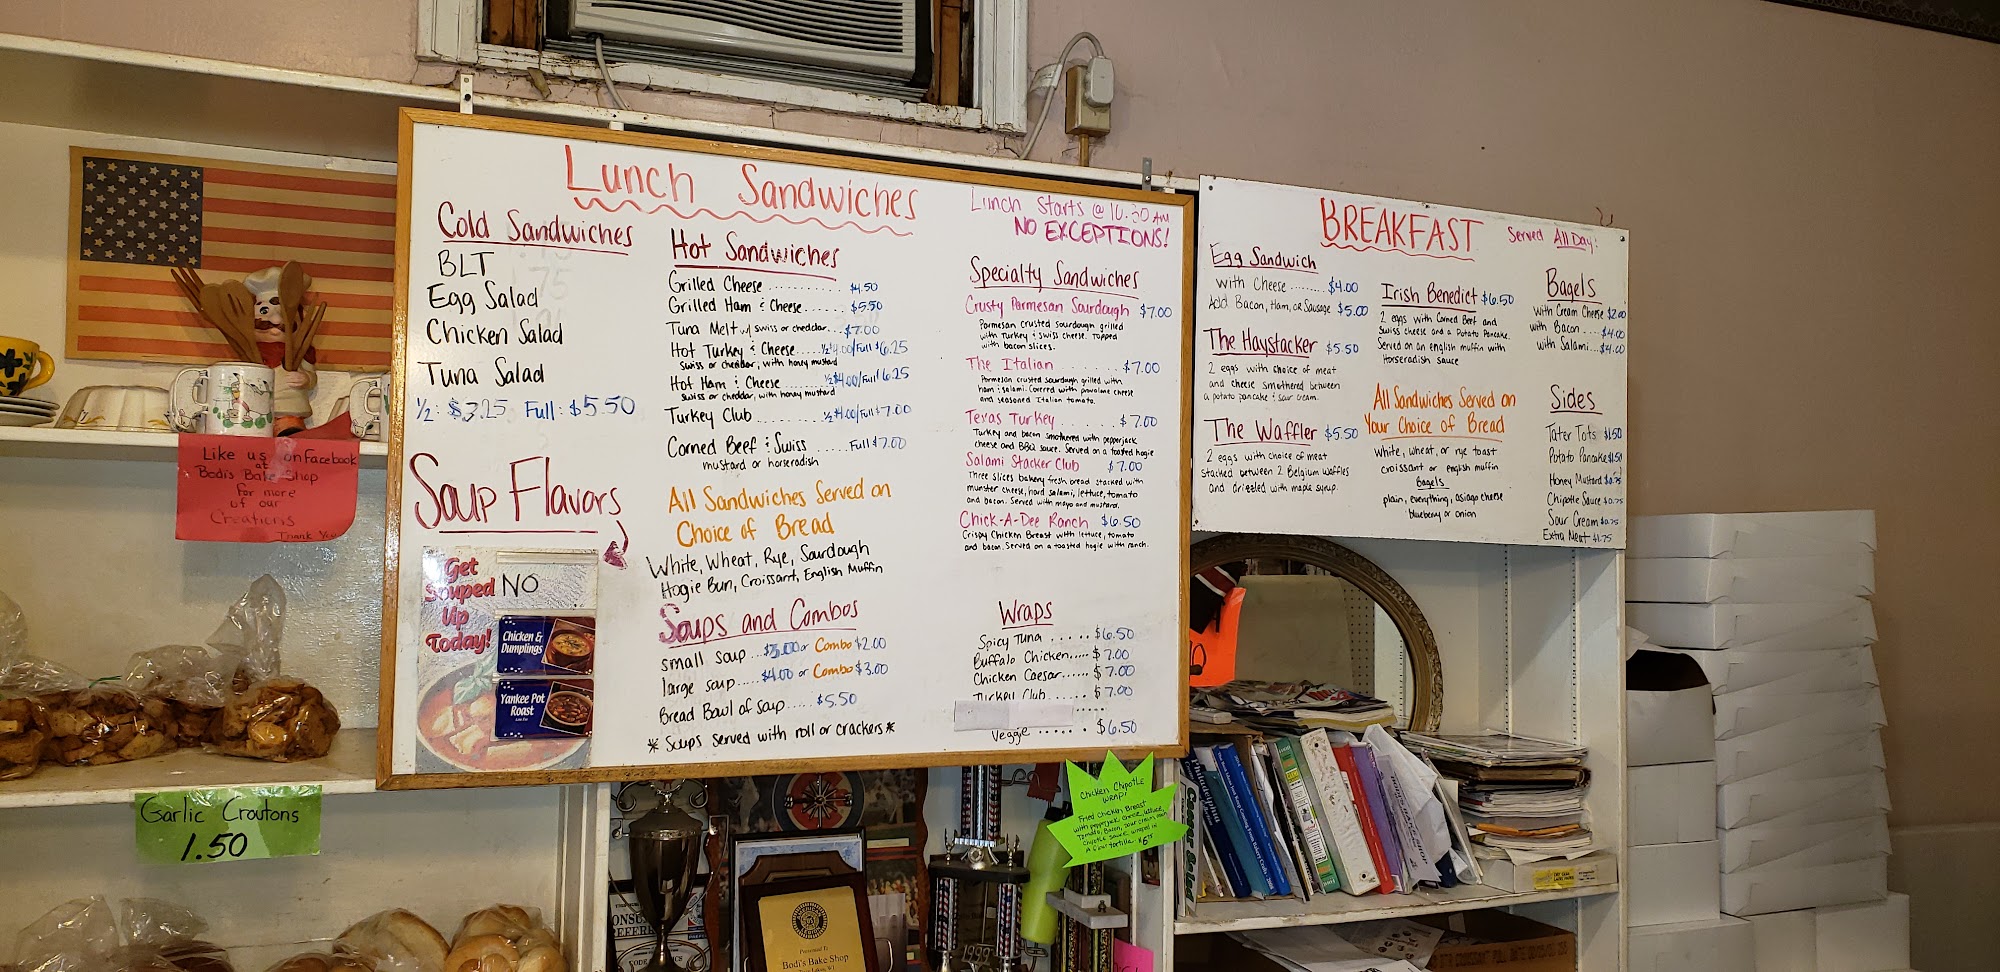 Like us on Facebook
at
Bodi's Bake Shop
for more
of our
Creations
Thank You
Garlic Croutons
1.50
Lunch Sandwiches
Lunch Starts @ 10:30 AM
NO EXCEPTIONS!
Cold Sandwiches
BLT
Egg Salad
Chicken Salad
Tuna Salad
1/2: $3.25 Full: $5.50
Soup Flavors
Get
Souped
Up
Today!
NO
Chicken &
Dumplings
Yankee Pot
Roast
Hot Sandwiches
Grilled Cheese ............ $4.50
Grilled Ham & Cheese....... $5.50
Tuna Melt w/ swiss or cheddar... $7.00
Hot Turkey & Cheese.... 1/2 $4.00/Full $6.25
Swiss or cheddar, with honey mustard
Hot Ham & Cheese ....... 1/2 $4.00/Full $6.25
Swiss or cheddar, with honey mustard
Turkey Club .......... 1/2 $4.00/Full $7.00
Corned Beef & Swiss ..... Full $7.00
mustard or horseradish
All Sandwiches Served on
Choice of Bread
White, Wheat, Rye, Sourdough
Hogie Bun, Croissant, English Muffin
Soups and Combos
small soup ... $3.00 or Combo $2.00
large soup..... $4.00 or Combo $3.00
Bread Bowl of soup..... $5.50
* Soups served with roll or crackers *
Specialty Sandwiches
Crusty Parmesan Sourdough $7.00
Parmesan crusted sourdough grilled
with Turkey & swiss cheese. Topped
with bacon slices.
The Italian ........ $7.00
Parmesan crusted sourdough grilled with
ham & salami. Covered with provalone cheese
and seasoned Italian tomato.
Texas Turkey ....... $7.00
Turkey and bacon smothered with pepperjack
cheese and BBQ sauce. Served on a toasted hogie
Salami Stacker Club $7.00
Three slices bakery fresh bread stacked with
munster cheese, hard salami, lettuce, tomato
and bacon. Served with mayo and mustard.
Chick-A-Dee Ranch $6.50
Crispy Chicken Breast with lettuce, tomato
and bacon. Served on a toasted hogie with ranch.
Wraps
Spicy Tuna ..... $6.50
Buffalo Chicken..... $7.00
Chicken Caesar...... $7.00
Turkey Club ...... $7.00
Veggie ...... $6.50
BREAKFAST
Served All Day:
Egg Sandwich
with Cheese ........ $4.00
Add Bacon, Ham, or Sausage $5.00
The Haystacker $5.50
2 eggs with choice of meat
and cheese smothered between
a potato pancake & sour cream.
The Waffler $5.50
2 eggs with choice of meat
stacked between 2 Belgium Waffles
and drizzled with maple syrup.
Irish Benedict $6.50
2 eggs with Corned Beef and
Swiss cheese and a Potato Pancake.
Served on an english muffin with
Horseradish sauce
All Sandwiches Served on
Your Choice of Bread
White, wheat, or rye toast
croissant or english muffin
Bagels
plain, everything, asiago cheese
blueberry or onion
Bagels
with Cream Cheese $2.00
with Bacon .... $4.00
with Salami... $4.00
Sides
Tater Tots $1.50
Potato Pancake $1.50
Honey Mustard $0.75
Chipotle Sauce $0.75
Sour Cream $0.75
Extra Meat $1.75
Chicken Chipotle
Wrap!
Fried Chicken Breast
with pepperjack cheese, lettuce,
Tomato, Bacon, sour cream and
chipotle sauce wrapped in
Presented To
Bodi's Bake Shop
1999